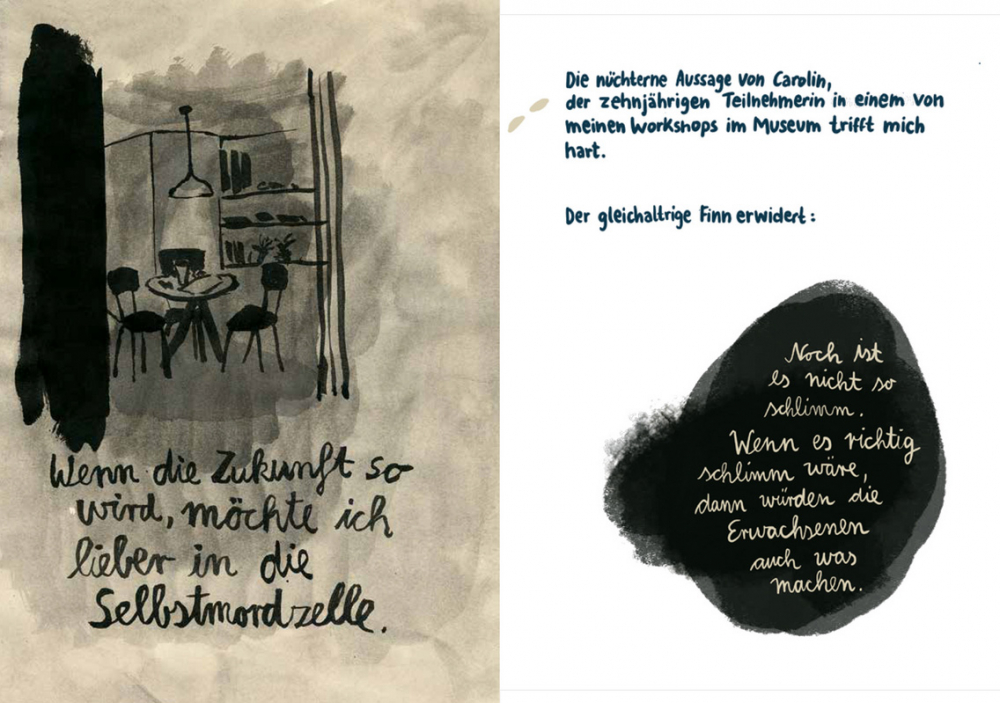 Wenn die Zukunft so
wird, möchte ich
lieber in die
Selbstmordzelle.
Die nüchterne Aussage von Carolin,
der zehnjährigen Teilnehmerin in einem von
meinen Workshops im Museum trifft mich
hart.
Der gleichaltrige Finn erwidert:
Noch ist
es nicht so
schlimm.
Wenn es richtig
schlimm wäre,
dann würden die
Erwachsenen
auch was
machen.